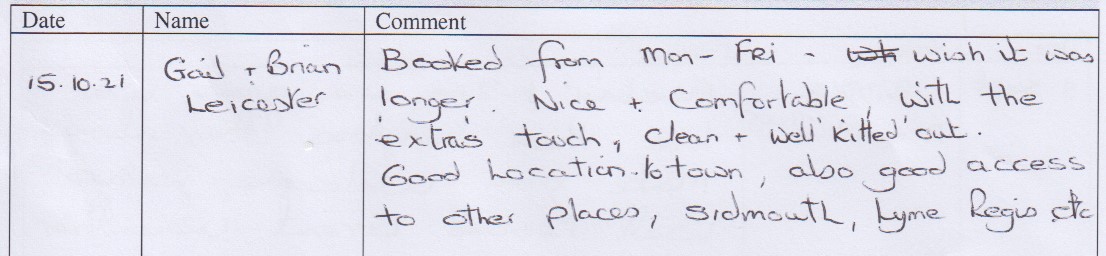 Date Name Comment
15.10.21 Gail + Brian Booked from Mon - Fri - wish it was
Leicester longer. Nice + Comfortable, with the
extras touch, clean + well 'kitted' out.
Good Location to town, also good access
to other places, Sidmouth, Lyme Regis etc